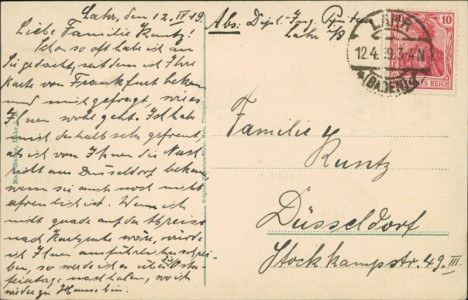 Lahr, den 12. IV 19.
Liebe Familie Kuntz!
Schon so oft habe ich an
Sie gedacht, seitdem ich Ihre
Karte von Frankfurt bekam
und mich gefragt, wie es
Ihnen wohl geht. Ich habe
mich deshalb sehr gefreut,
als ich von Ihnen die Nach-
richt aus Düsseldorf bekam
wenn sie auch noch nicht
erfreulich ist. Wenn ich
nicht gerade auf der Abreise
nach Karlsruhe wäre, würde
ich Ihnen ausführlicher schrei-
ben, so werde ich es über Oster-
feiertag nachholen, wo ich
wieder zu Hause bin.
Abs: Dipl. Ing.
Lahr i/B
LAHR
12.4.19.3-4N
(BADEN)
10
REICH
Familie
Kuntz
Düsseldorf
Stockkampstr. 49 III.